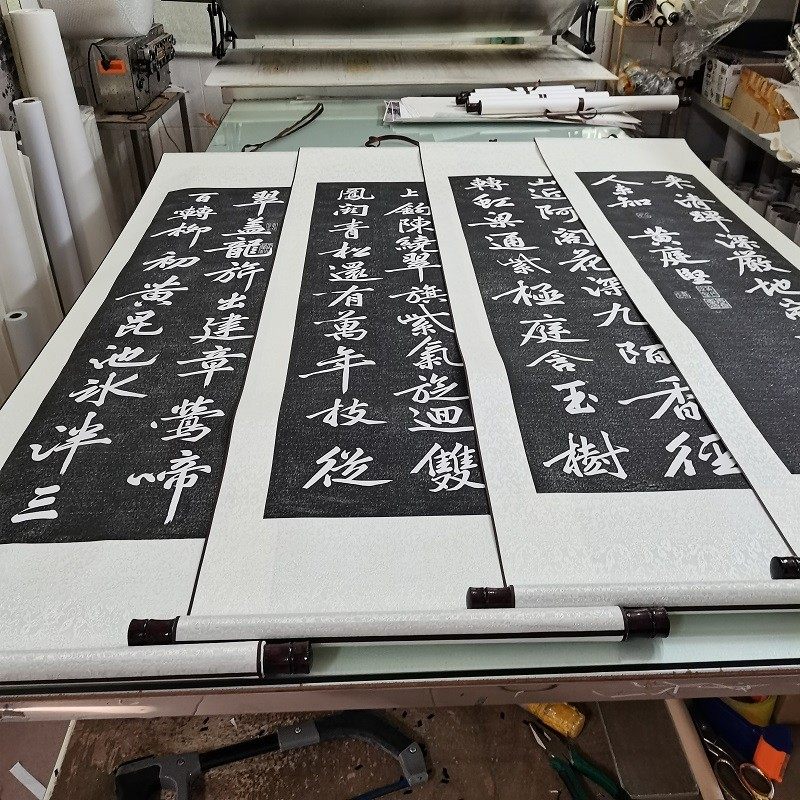 翠蓋龍旂出建章鶯啼
百轉柳初黃昆池冰泮三
上鈎陳繞翠旗紫氣旋迴雙
鳳闕青松還有萬年枝從
山近阿閣花深九陌香徑
轉虹梁通紫極庭含玉樹
來清蹕深嚴地
人未知 黃庭堅